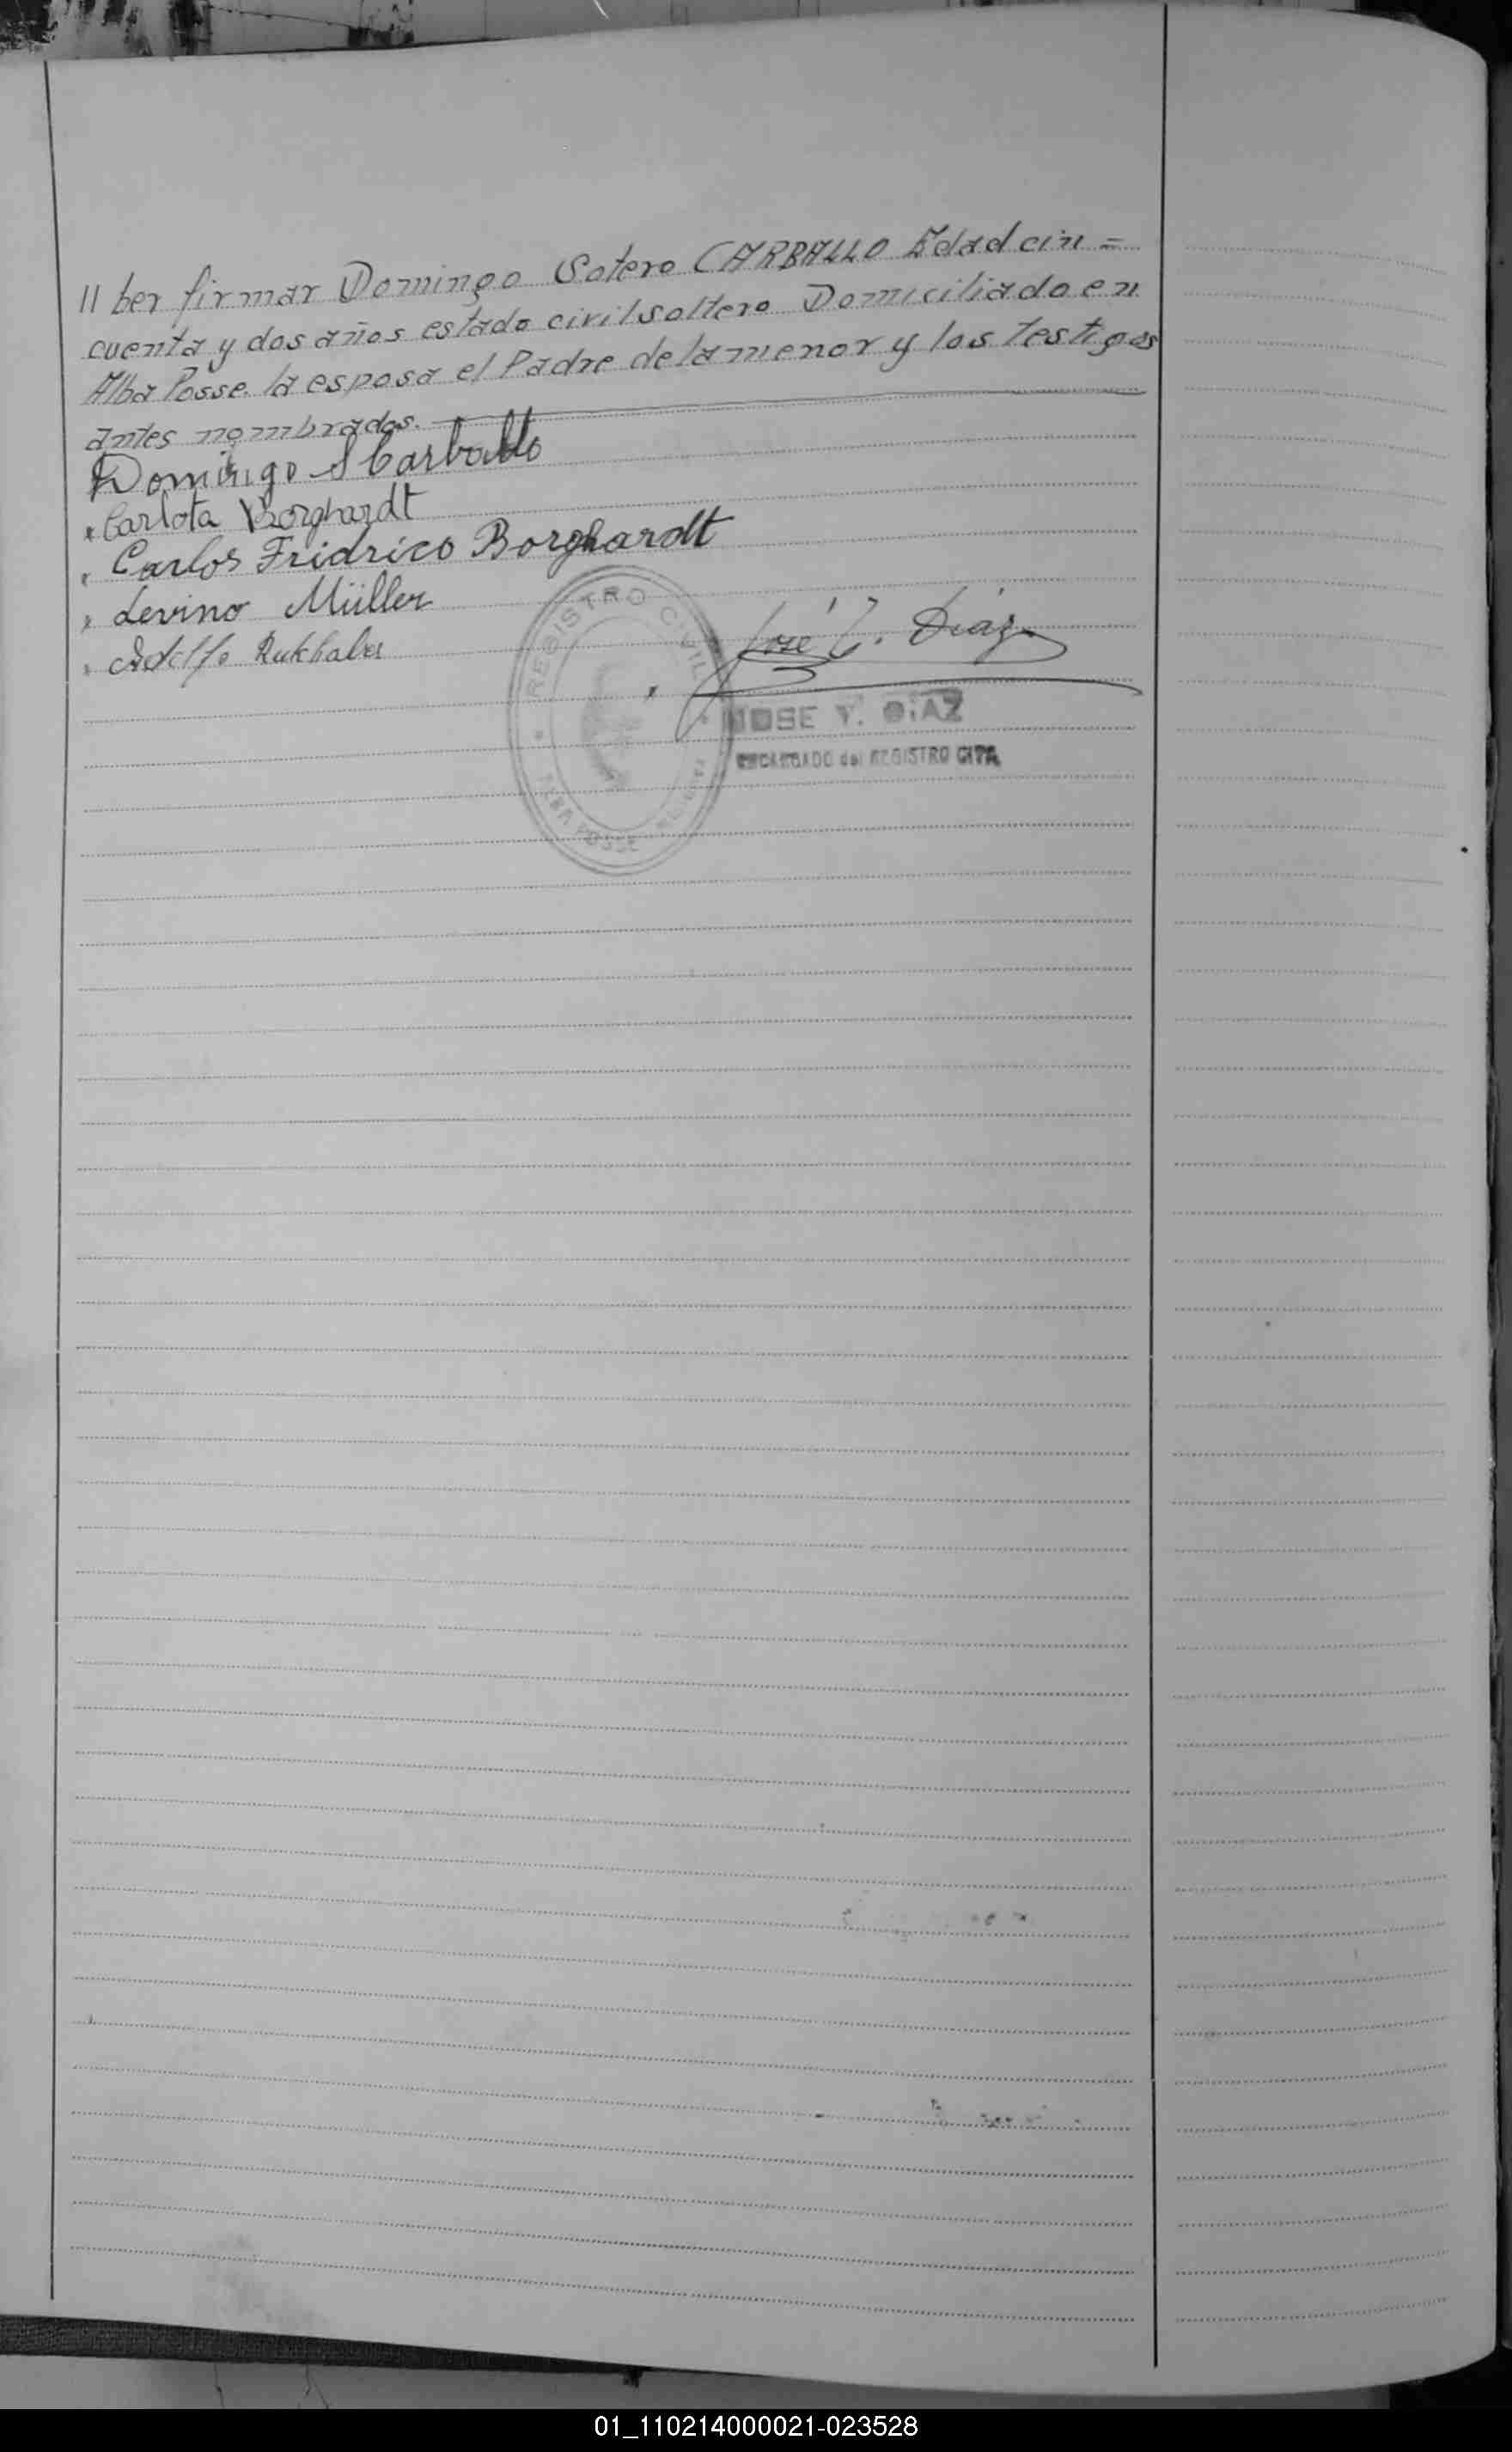 // ber firmar Domingo Sotero CARBALLO Edad cin=
cuenta y dos años estado civil soltero Domiciliado en
Alba Posse. la esposa el Padre de la menor y los Testigos
antes nombrados.
Domingo S Carballo
Carlota Borghardt
Carlos Fridrico Borghardt
Levino Müller
Adolfo
José Díaz
REGISTRO CIVIL
ALBA POSSE
JOSE Y. DIAZ
ENCARGADO del REGISTRO
01_110214000021-023528